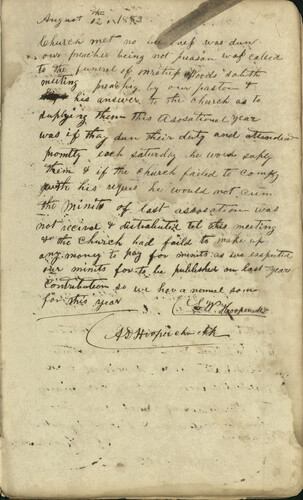 August the 12 1882
Church met no buisnef was dun
our preacher being not preasan was caled
to the funeral of mrs Woods saboth
meeting preaching by our pastor &
his answer to the Church as to
suplying them this Assosational year
was if thay dun their duty and attended
promtly each saturday he would suply
them & if the Church failed to comply
with his reques he would not cum
the Minits of last assosation was
not recieved & distributed tel this meeting
& the Church had faild to make up
any money to pay for minits as we expected
our minits for to be publisher on last years
Contribution so we hav a numel some
for this year
A D Hooper ch clk